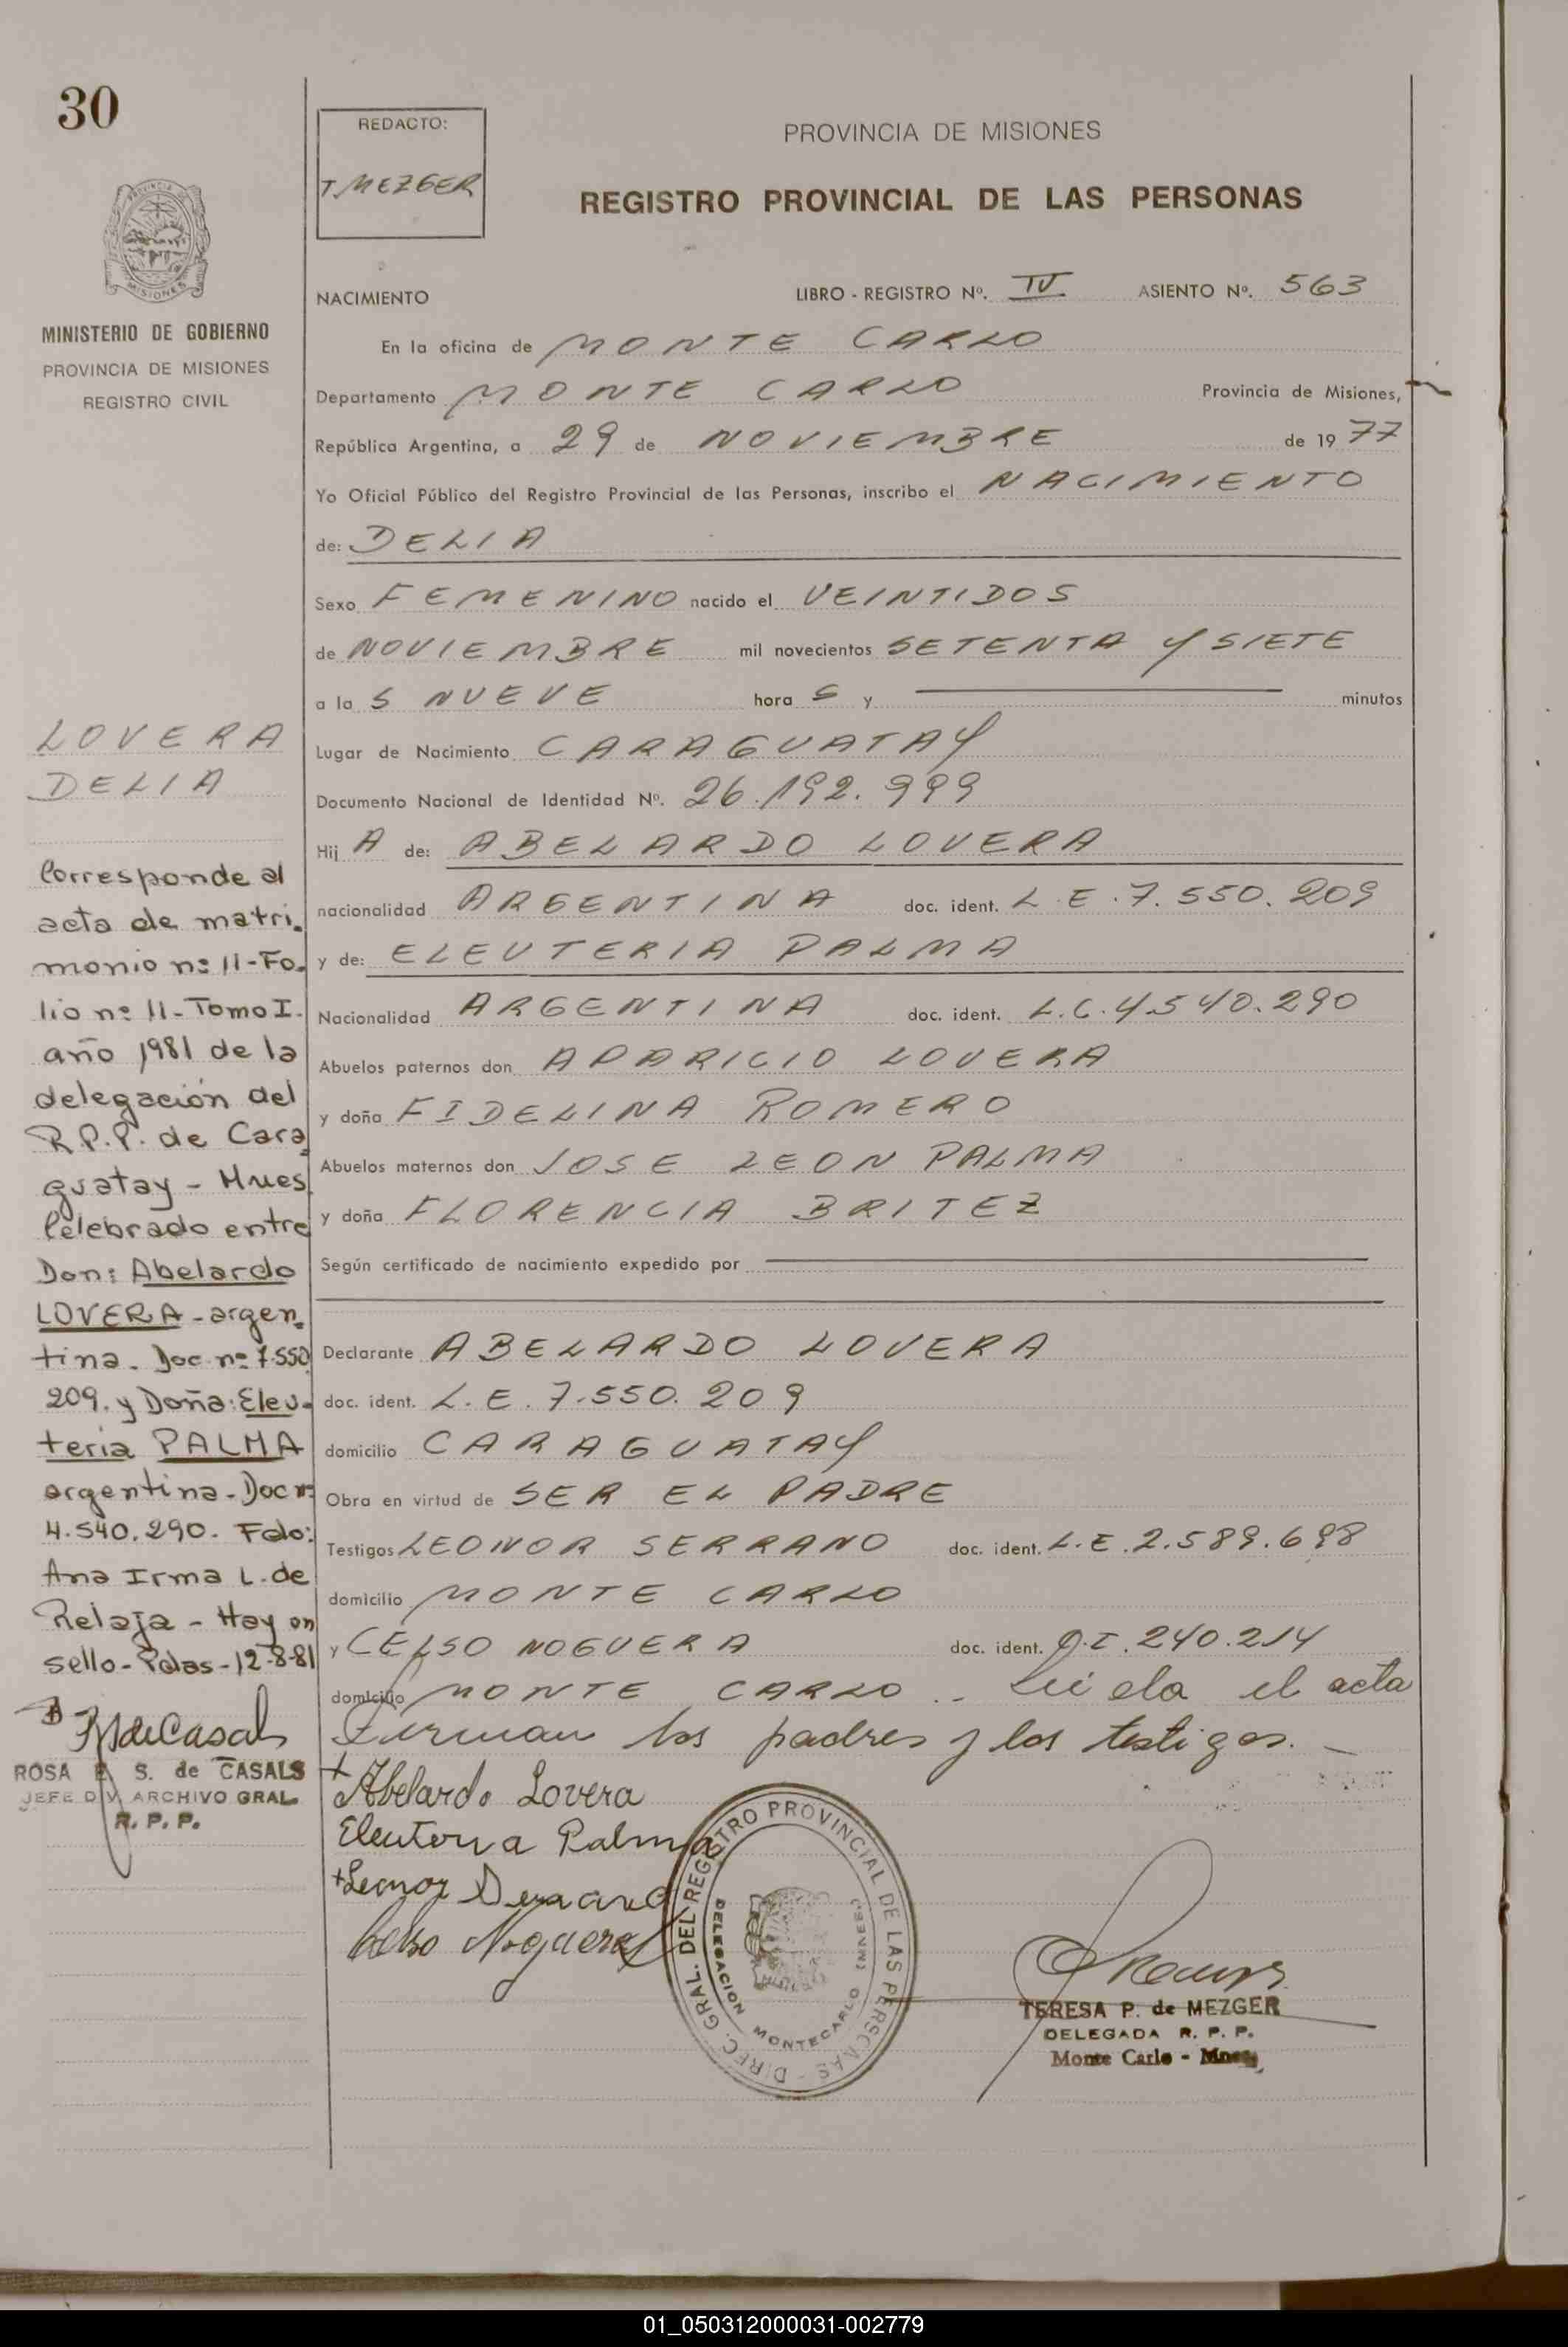 30
REDACTO:
T. MEZGER
PROVINCIA DE MISIONES
REGISTRO PROVINCIAL DE LAS PERSONAS
PROVINCIA DE
MISIONES
MINISTERIO DE GOBIERNO
PROVINCIA DE MISIONES
REGISTRO CIVIL
NACIMIENTO LIBRO - REGISTRO Nº. IV ASIENTO Nº. 563
En la oficina de MONTE CARLO
Departamento MONTE CARLO Provincia de Misiones,
República Argentina, a 29 de NOVIEMBRE de 1977
Yo Oficial Público del Registro Provincial de las Personas, inscribo el NACIMIENTO
de: DELIA
Sexo FEMENINO nacido el VEINTIDOS
de NOVIEMBRE mil novecientos SETENTA Y SIETE
a la S NUEVE hora S y minutos
Lugar de Nacimiento CARAGUATAY
Documento Nacional de Identidad Nº. 26.192.999
Hij A de: ABELARDO LOVERA
nacionalidad ARGENTINA doc. ident. L.E. 7.550.209
y de: ELEUTERIA PALMA
Nacionalidad ARGENTINA doc. ident. L.C. 4.540.290
Abuelos paternos don APARICIO LOVERA
y doña FIDELINA ROMERO
Abuelos maternos don JOSE LEON PALMA
y doña FLORENCIA BRITEZ
Según certificado de nacimiento expedido por
Declarante ABELARDO LOVERA
doc. ident. L.E. 7.550.209
domicilio CARAGUATAY
Obra en virtud de SER EL PADRE
Testigos LEONOR SERRANO doc. ident. L.E. 2.589.698
domicilio MONTE CARLO
y CELSO NOGUERA doc. ident. 240.214
domicilio MONTE CARLO.. Leída el acta
Firman los padres y los testigos. —
LOVERA
DELIA
Corresponde al
acta de matri-
monio nº 11-Fo-
lio nº 11-Tomo I-
año 1981 de la
delegación del
R.P.P. de Cara-
guatay - Mnes.
Celebrado entre
Don: Abelardo
LOVERA - argen-
tina. Doc. nº 7.550
209. y Doña: Eleu-
teria PALMA
argentina - Doc nº
4.540.290. Fdo:
Ana Irma L. de
Relaja - Hay un
sello - Pdas - 12-8-81
ROSA E. S. de CASALS
JEFE DIV. ARCHIVO GRAL.
R. P. P.
Abelardo Lovera
Eleuteria Palma
Leonor Serrano
Celso Noguera
DIREC. GRAL. DEL REGISTRO PROVINCIAL DE LAS PERSONAS
DELEGACION MONTECARLO
TERESA P. de MEZGER
DELEGADA R. P. P.
Monte Carlo - Mnes.
01_050312000031-002779